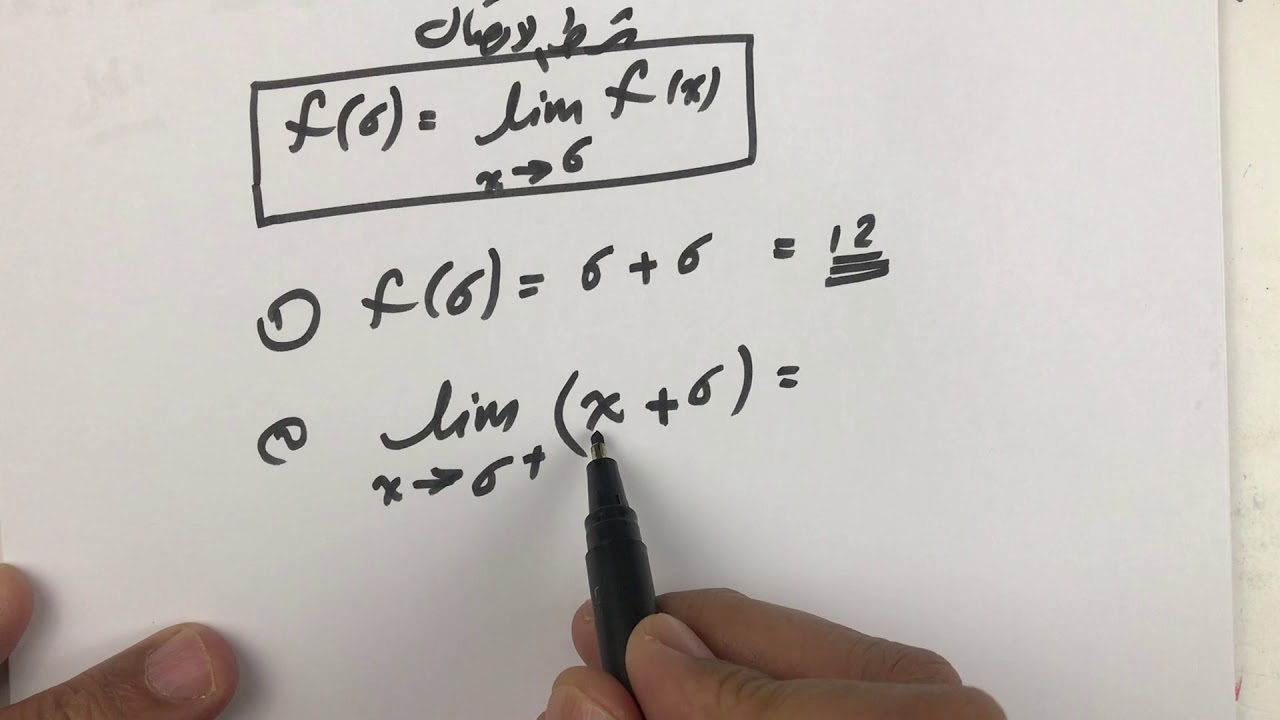 شرط الاتصال
f(6) = lim f(x)
x → 6
① f(6) = 6 + 6 = 12
② lim (x + 6) =
x → 6+